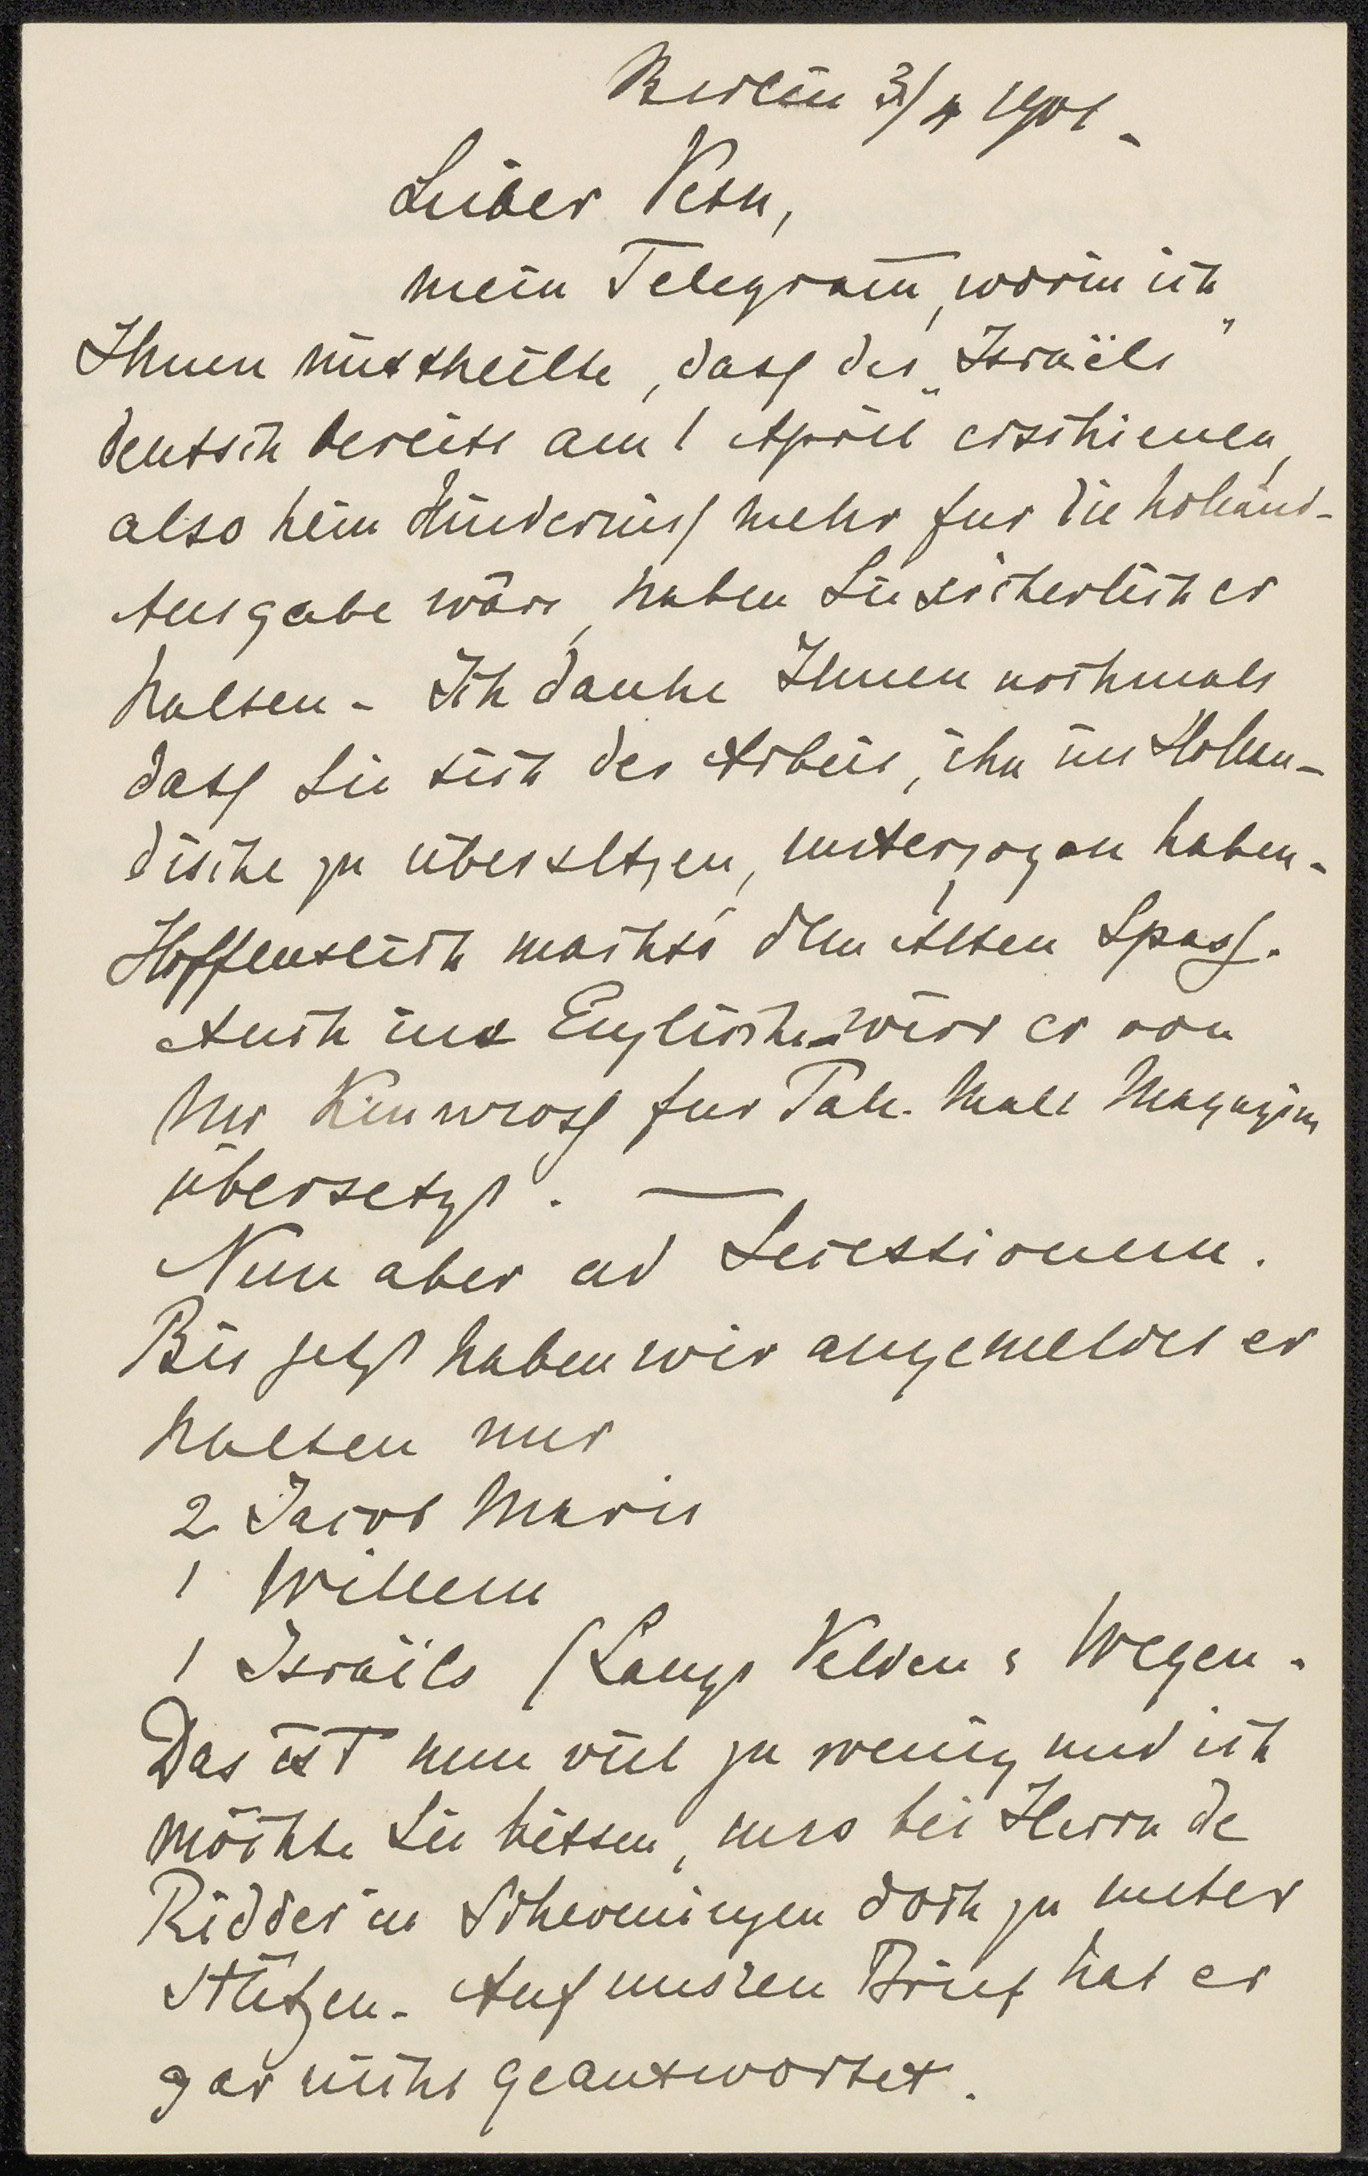 Berlin 3/4 1901 -
Lieber Veth,
mein Telegram̅, worin ich
Ihnen mittheilte, dass der „Israëls"
deutsch bereits am 1 April erschienen,
also kein Hinderniss mehr fur die holländ-
Ausgabe wäre, haben Sie sicherlich er
halten - Ich danke Ihnen nochmals
dass Sie sich der Arbeit, ihn ins Hollän-
dische zu übersetzen, unterzogen haben -
Hoffentlich macht's dem Alten Spass.
Auch ins Englische wird er von
Mr Kinnross fur Pall. Mall Magazin
übersetzt. —
Nun aber ad Secessionem.
Bis jetzt haben wir angemeldet er
halten nur
2 Jacob Maris
1 Willem
1 Israëls (Langs Velden & Wegen -
Das ist nun viel zu wenig und ich
möchte Sie bitten, uns bei Herrn de
Ridder in Scheveningen doch zu unter
stützen - Auf unsren Brief hat er
gar nicht geantwortet.